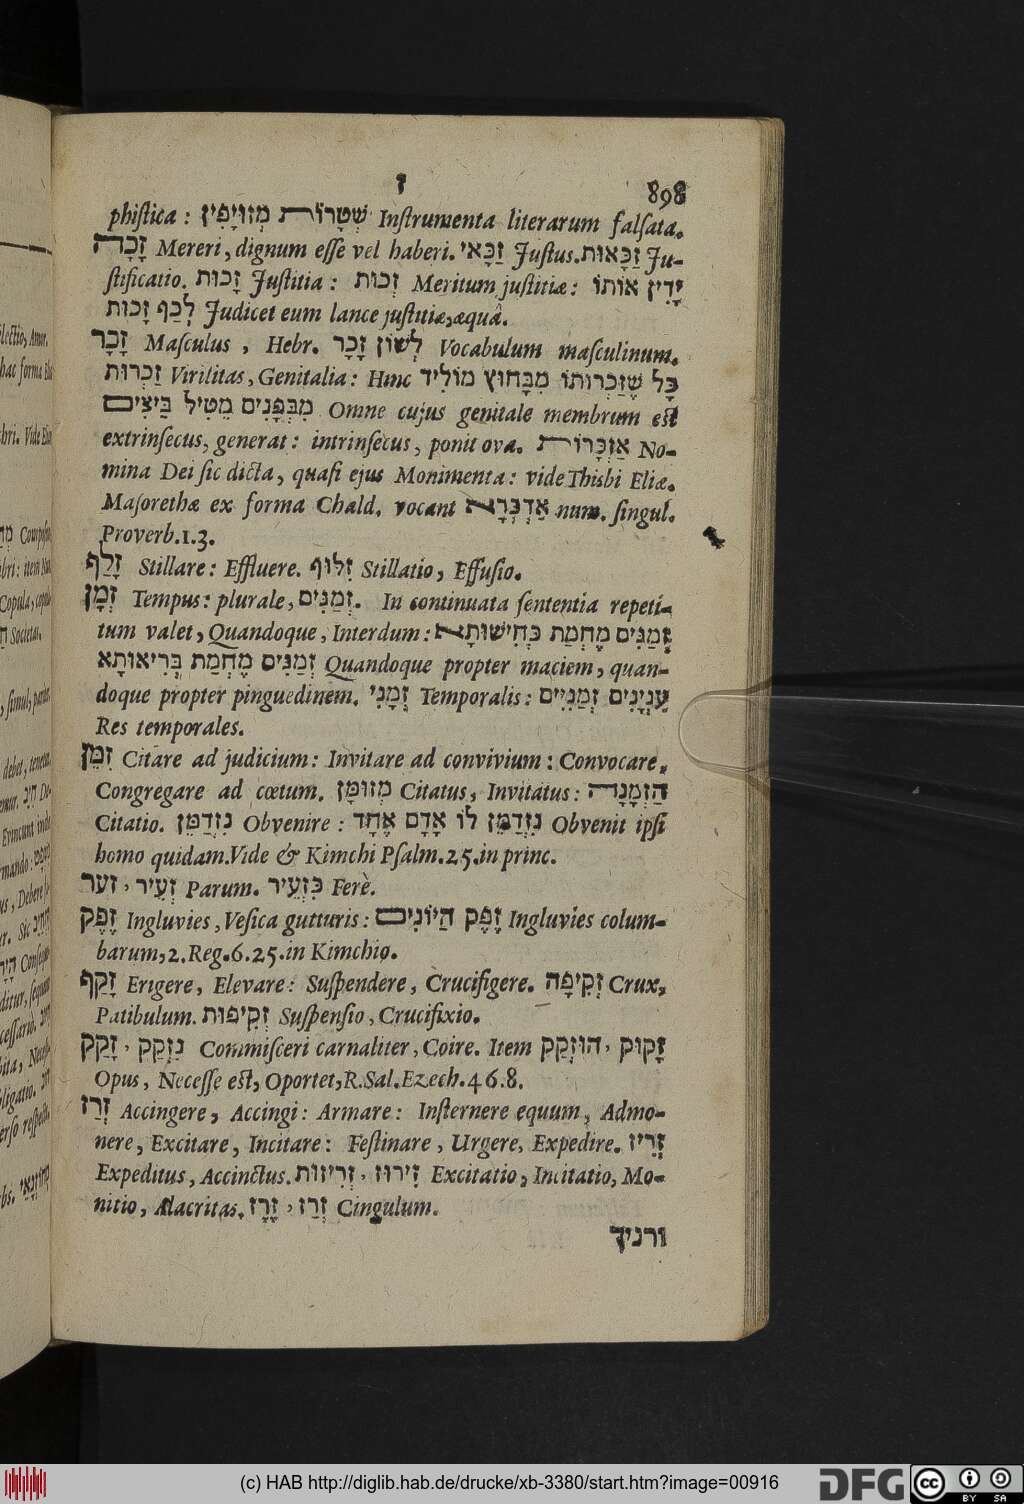 ז 898
phiſtica: שְׁטָרוֹת מְזוּיָפִין Inſtrumenta literarum falſata.
זָכָה Mereri, dignum eſſe vel haberi. זַכָּאי Juſtus. זַכָּאוּת Ju-
ſtificatio. זָכוּת Juſtitia: זְכוּת Meritum juſtitiæ: יָדִין אוֹתוֹ
לְכַף זָכוּת Judicet eum lance juſtitiæ, æquâ.
זָכָר Maſculus, Hebr. לְשׁוֹן זָכָר Vocabulum maſculinum.
זַכְרוּת Virilitas, Genitalia: Hinc כָּל שֶׁזַּכְרוּתוֹ מִבָּחוּץ מוֹלִיד
מִבִּפְנִים מֵטִיל בֵּיצִים Omne cujus genitale membrum est
extrinſecus, generat: intrinſecus, ponit ova. אַזְכָּרוֹת No-
mina Dei ſic dicta, quaſi ejus Monimenta: vide Thisbi Eliæ.
Maſorethæ ex forma Chald. vocant אַדְכְּרָא num. ſingul.
Proverb.1.3.
זָלַף Stillare: Effluere. זִלּוּף Stillatio, Effuſio.
זְמָן Tempus: plurale, זְמַנִּים. In continuata ſententia repeti-
tum valet, Quandoque, Interdum: זְמַנִּים מֶחְמַת כְּחִישׁוּתָא
זְמַנִּים מֶחְמַת בְּרִיאוּתָא Quandoque propter maciem, quan-
doque propter pinguedinem. זְמָנִי Temporalis: עִנְיָנִים זְמַנִּיִּים
Res temporales.
זִמֵּן Citare ad judicium: Invitare ad convivium: Convocare,
Congregare ad cœtum. מְזוּמָּן Citatus, Invitatus: הַזְמָנָה
Citatio. נִזְדַּמֵּן Obvenire: נִזְדַּמֵּן לוֹ אָדָם אֶחָד Obvenit ipſi
homo quidam. Vide & Kimchi Pſalm.25. in princ.
זער, זְעֵיר Parum. כִּזְעֵיר Ferè.
זֶפֶק Ingluvies, Veſica gutturis: זֶפֶק הַיּוֹנִים Ingluvies colum-
barum, 2.Reg.6.25. in Kimchio.
זָקַף Erigere, Elevare: Suſpendere, Crucifigere. זְקִיפָה Crux,
Patibulum. זְקִיפוּת Suſpenſio, Crucifixio.
זָקַק, נִזְקַק Commiſceri carnaliter, Coire. Item זָקוּק, הוּזְקַק
Opus, Neceſſe est, Oportet, R.Sal. Ezech.46.8.
זֵרַז Accingere, Accingi: Armare: Inſternere equum, Admo-
nere, Excitare, Incitare: Feſtinare, Urgere, Expedire. זָרִיז
Expeditus, Accinctus. זֵירוּז, זְרִיזוּת Excitatio, Incitatio, Mo-
nitio, Alacritas. זָרָז, זְרַז Cingulum.
(c) HAB http://diglib.hab.de/drucke/xb-3380/start.htm?image=00916
DFG
cc BY SA